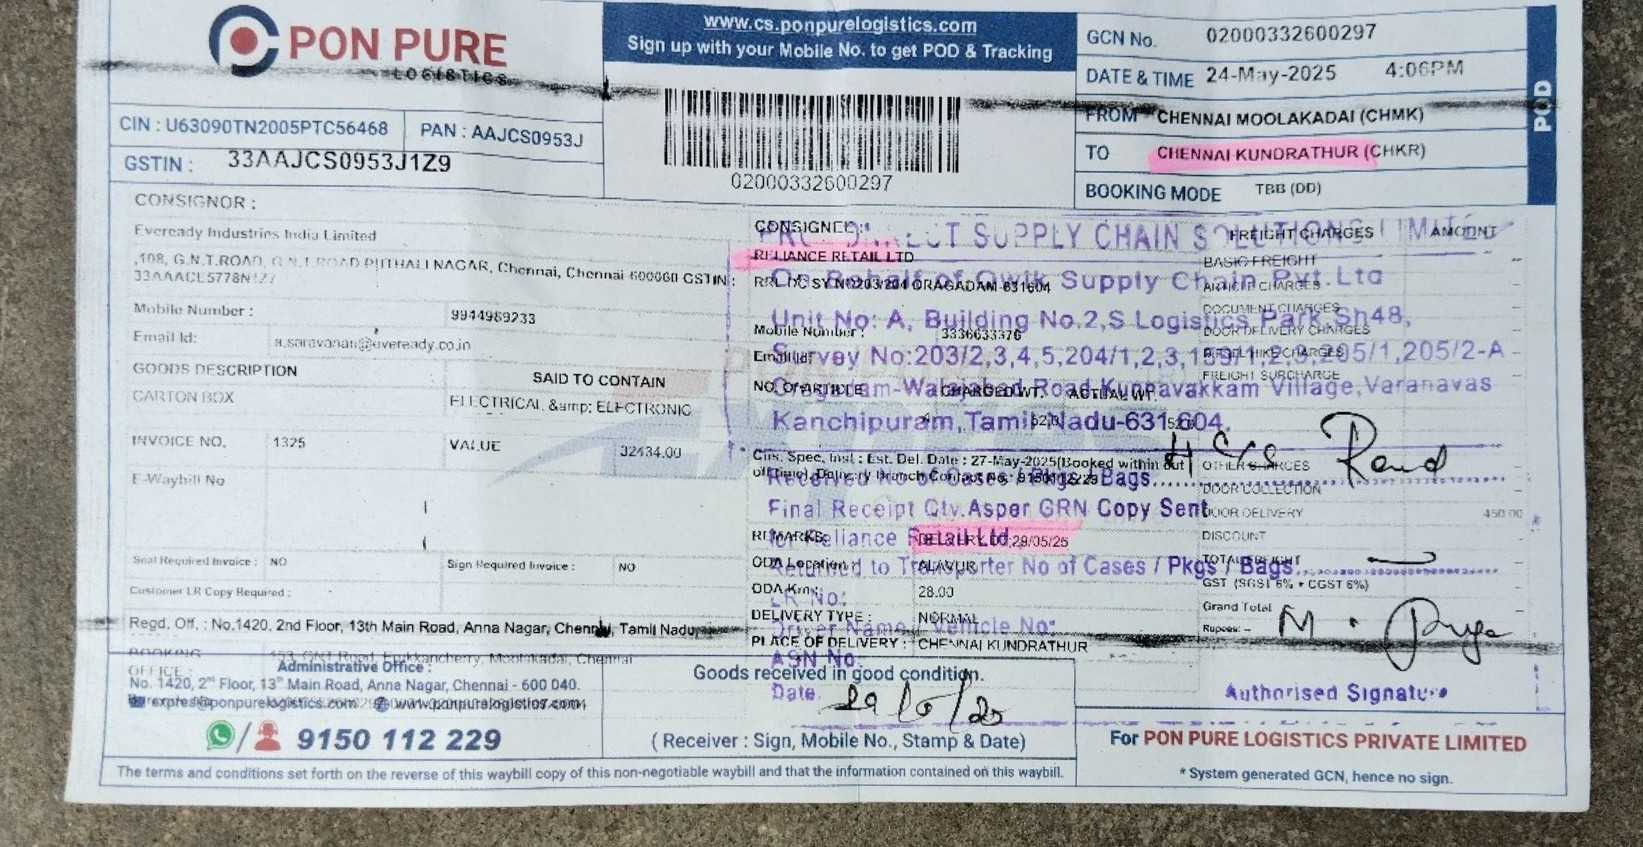 PON PURE
LOGISTICS
www.cs.ponpurelogistics.com
Sign up with your Mobile No. to get POD & Tracking
GCN No. 02000332600297
DATE & TIME 24-May-2025 4:06PM
FROM CHENNAI MOOLAKADAI (CHMK)
TO CHENNAI KUNDRATHUR (CHKR)
BOOKING MODE TBB (DD)
POD
CIN : U63090TN2005PTC56468 PAN : AAJCS0953J
GSTIN : 33AAJCS0953J1Z9
02000332600297
CONSIGNOR :
Eveready Industries India Limited
,108, G.N.T.ROAD, G.N.T.ROAD PUTHALI NAGAR, Chennai, Chennai-600060 GSTIN :
Mobile Number : 9944989233
Email Id: a.saravanan@eveready.co.in
GOODS DESCRIPTION SAID TO CONTAIN
CARTON BOX ELECTRICAL &amp; ELECTRONIC
INVOICE NO. 1325 VALUE 32434.00
E-Waybill No
Seal Required Invoice : NO Sign Required Invoice : NO
Customer LR Copy Required :
Regd. Off. : No.1420, 2nd Floor, 13th Main Road, Anna Nagar, Chennai, Tamil Nadu
BOOKING
OFFICE :
CONSIGNEE:
RELIANCE RETAIL LTD
ORAGADAM-631604
Mobile Number : 3336633376
Email Id:
NO. Of ARTICLE CHARGED WT. ACTUAL WT.
Cus. Spec. Inst : Est. Del. Date : 27-May-2025(Booked within cut
REMARKS: 29/05/25
ODA Location
ODA Kms: 28.00
DELIVERY TYPE : NORMAL
PLACE OF DELIVERY : CHENNAI KUNDRATHUR
SUPPLY CHAIN SOLUTIONS LIMITED
On Behalf of Qwik Supply Chain Pvt. Ltd
Unit No: A, Building No.2,S Logistics Park,Sh48,
Survey No:203/2,3,4,5,204/1,2,3,
205/1,205/2-A
Oragadam-Walajabad Road,Kunnavakkam Village,Varanavas
Kanchipuram, Tamil Nadu-631 604.
Received No of Cases / Pkgs / Bags
Final Receipt Qty.Asper GRN Copy Sent
for Reliance Retail Ltd
Returned to Transporter No of Cases / Pkgs / Bags
LR No:
Driver Name / Vehicle No:
ASN No.
Date.
Authorised Signature
FREIGHT CHARGES AMOUNT
BASIC FREIGHT
ARTICLE CHARGES
DOCUMENT CHARGES
DOOR DELIVERY CHARGES
FREIGHT SURCHARGE
OTHER CHARGES
DOOR COLLECTION
DOOR DELIVERY 450.00
DISCOUNT
TOTAL FREIGHT
GST (SGST 6% + CGST 6%)
Grand Total
Rupees: –
Administrative Office :
No. 1420, 2nd Floor, 13th Main Road, Anna Nagar, Chennai - 600 040.
express@ponpurelogistics.com www.ponpurelogistics.com
9150 112 229
Goods received in good condition.
( Receiver : Sign, Mobile No., Stamp & Date)
For PON PURE LOGISTICS PRIVATE LIMITED
* System generated GCN, hence no sign.
The terms and conditions set forth on the reverse of this waybill copy of this non-negotiable waybill and that the information contained on this waybill.